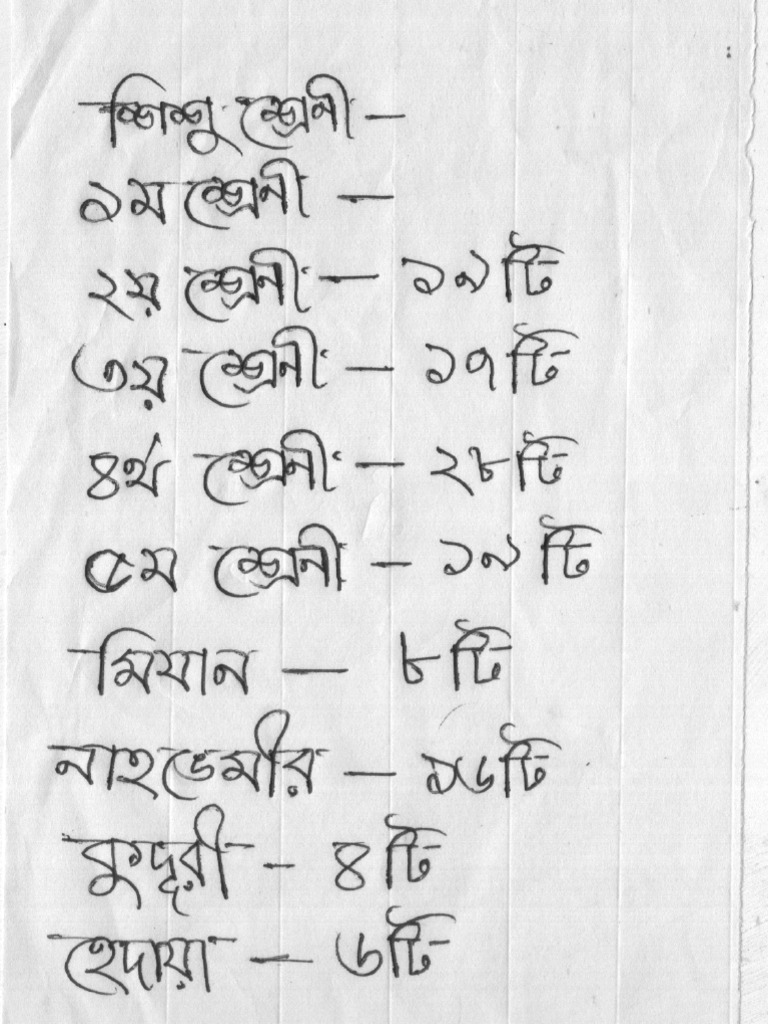 শিশু শ্রেনী —
১ম শ্রেনী —
২য় শ্রেনী — ১৯টি
৩য় শ্রেনী — ১৭টি
৪র্থ শ্রেনী — ২৮টি
৫ম শ্রেনী — ১৯টি
মিযান — ৮টি
নাহভেমীর — ১৬টি
কুদূরী — ৪টি
হেদায়া — ৬টি